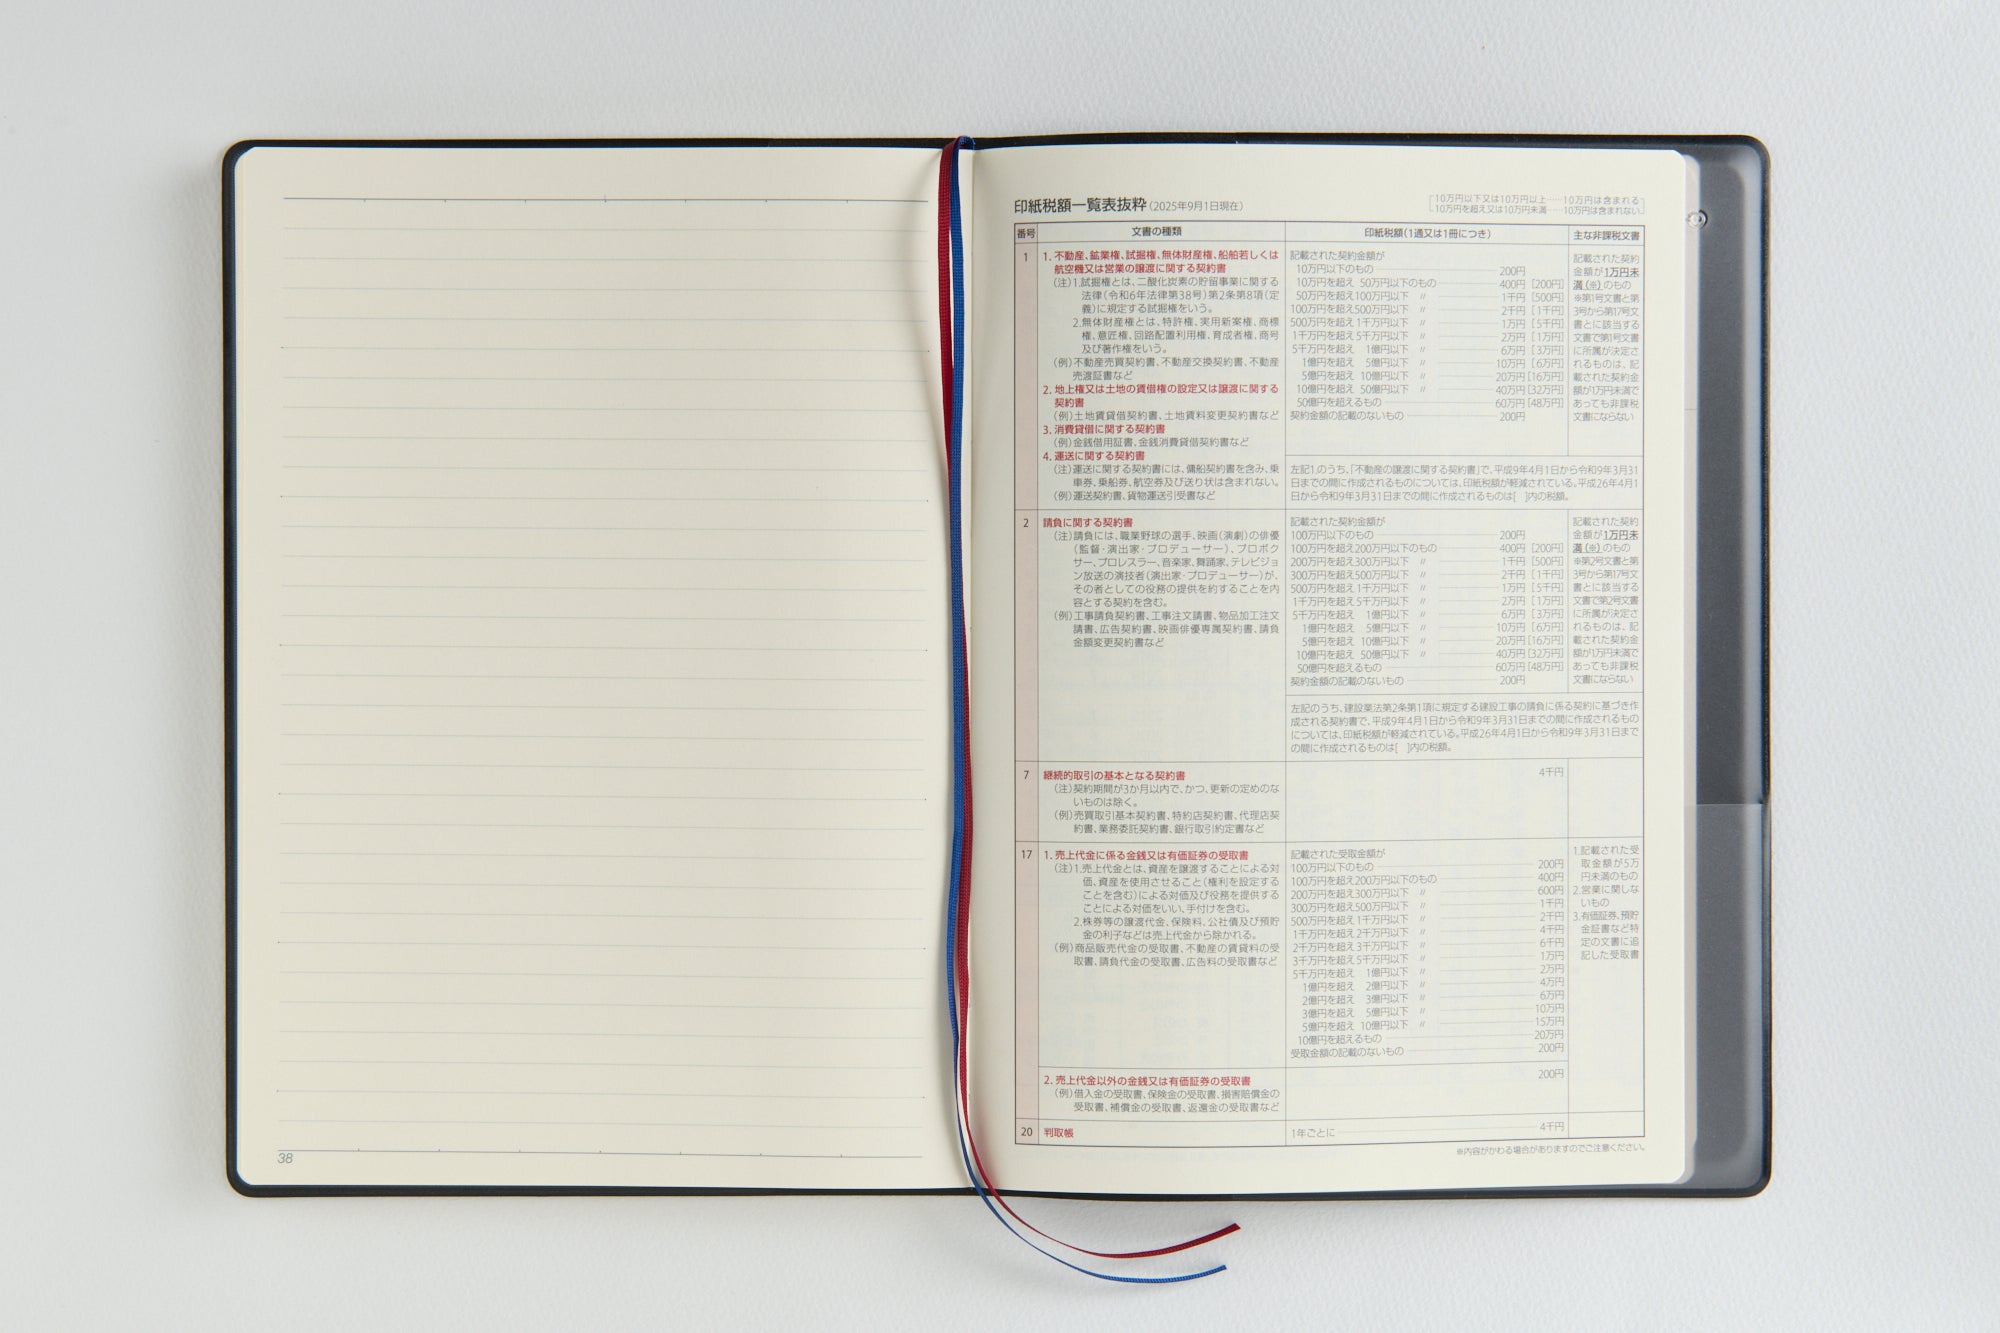 38
印紙税額一覧表抜粋(2025年9月1日現在)
10万円以下又は10万円以上……10万円は含まれる
10万円を超え又は10万円未満……10万円は含まれない
番号 文書の種類 印紙税額(1通又は1冊につき) 主な非課税文書
1
1. 不動産、鉱業権、試掘権、無体財産権、船舶若しくは
航空機又は営業の譲渡に関する契約書
(注)1.試掘権とは、二酸化炭素の貯留事業に関する
法律(令和6年法律第38号)第2条第8項(定
義)に規定する試掘権をいう。
2.無体財産権とは、特許権、実用新案権、商標
権、意匠権、回路配置利用権、育成者権、商号
及び著作権をいう。
(例)不動産売買契約書、不動産交換契約書、不動産
売渡証書など
2. 地上権又は土地の賃借権の設定又は譲渡に関する
契約書
(例)土地賃貸借契約書、土地賃料変更契約書など
3. 消費貸借に関する契約書
(例)金銭借用証書、金銭消費貸借契約書など
4. 運送に関する契約書
(注)運送に関する契約書には、傭船契約書を含み、乗
車券、乗船券、航空券及び送り状は含まれない。
(例)運送契約書、貨物運送引受書など
記載された契約金額が
10万円以下のもの 200円
10万円を超え 50万円以下のもの 400円 [200円]
50万円を超え100万円以下 〃 1千円 [500円]
100万円を超え500万円以下 〃 2千円 [1千円]
500万円を超え1千万円以下 〃 1万円 [5千円]
1千万円を超え5千万円以下 〃 2万円 [1万円]
5千万円を超え 1億円以下 〃 6万円 [3万円]
1億円を超え 5億円以下 〃 10万円 [6万円]
5億円を超え 10億円以下 〃 20万円 [16万円]
10億円を超え 50億円以下 〃 40万円 [32万円]
50億円を超えるもの 60万円 [48万円]
契約金額の記載のないもの 200円
左記1.のうち、「不動産の譲渡に関する契約書」で、平成9年4月1日から令和9年3月31
日までの間に作成されるものについては、印紙税額が軽減されている。平成26年4月1
日から令和9年3月31日までの間に作成されるものは[ ]内の税額。
記載された契約
金額が1万円未
満(※)のもの
※第1号文書と第
3号から第17号文
書とに該当する
文書で第1号文書
に所属が決定さ
れるものは、記
載された契約金
額が1万円未満で
あっても非課税
文書にならない
2
請負に関する契約書
(注)請負には、職業野球の選手、映画(演劇)の俳優
(監督・演出家・プロデューサー)、プロボク
サー、プロレスラー、音楽家、舞踊家、テレビジョ
ン放送の演技者(演出家・プロデューサー)が、
その者としての役務の提供を約することを内
容とする契約を含む。
(例)工事請負契約書、工事注文請書、物品加工注文
請書、広告契約書、映画俳優専属契約書、請負
金額変更契約書など
記載された契約金額が
100万円以下のもの 200円
100万円を超え200万円以下のもの 400円 [200円]
200万円を超え300万円以下 〃 1千円 [500円]
300万円を超え500万円以下 〃 2千円 [1千円]
500万円を超え1千万円以下 〃 1万円 [5千円]
1千万円を超え5千万円以下 〃 2万円 [1万円]
5千万円を超え 1億円以下 〃 6万円 [3万円]
1億円を超え 5億円以下 〃 10万円 [6万円]
5億円を超え 10億円以下 〃 20万円 [16万円]
10億円を超え 50億円以下 〃 40万円 [32万円]
50億円を超えるもの 60万円 [48万円]
契約金額の記載のないもの 200円
左記のうち、建設業法第2条第1項に規定する建設工事の請負に係る契約に基づき作
成される契約書で、平成9年4月1日から令和9年3月31日までの間に作成されるもの
については、印紙税額が軽減されている。平成26年4月1日から令和9年3月31日まで
の間に作成されるものは[ ]内の税額。
記載された契約
金額が1万円未
満(※)のもの
※第2号文書と第
3号から第17号文
書とに該当する
文書で第2号文書
に所属が決定さ
れるものは、記
載された契約金
額が1万円未満で
あっても非課税
文書にならない
7
継続的取引の基本となる契約書
(注)契約期間が3か月以内で、かつ、更新の定めのな
いものは除く。
(例)売買取引基本契約書、特約店契約書、代理店契
約書、業務委託契約書、銀行取引約定書など
4千円
17
1. 売上代金に係る金銭又は有価証券の受取書
(注)1.売上代金とは、資産を譲渡することによる対
価、資産を使用させること(権利を設定する
ことを含む)による対価及び役務を提供する
ことによる対価をいい、手付けを含む。
2.株券等の譲渡代金、保険料、公社債及び預貯
金の利子などは売上代金から除かれる。
(例)商品販売代金の受取書、不動産の賃貸料の受
取書、請負代金の受取書、広告料の受取書など
記載された受取金額が
100万円以下のもの 200円
100万円を超え200万円以下のもの 400円
200万円を超え300万円以下 〃 600円
300万円を超え500万円以下 〃 1千円
500万円を超え1千万円以下 〃 2千円
1千万円を超え2千万円以下 〃 4千円
2千万円を超え3千万円以下 〃 6千円
3千万円を超え5千万円以下 〃 1万円
5千万円を超え 1億円以下 〃 2万円
1億円を超え 2億円以下 〃 4万円
2億円を超え 3億円以下 〃 6万円
3億円を超え 5億円以下 〃 10万円
5億円を超え 10億円以下 〃 15万円
10億円を超えるもの 20万円
受取金額の記載のないもの 200円
1.記載された受
取金額が5万
円未満のもの
2.営業に関しな
いもの
3.有価証券、預貯
金証書など特
定の文書に追
記した受取書
2. 売上代金以外の金銭又は有価証券の受取書
(例)借入金の受取書、保険金の受取書、損害賠償金の
受取書、補償金の受取書、返還金の受取書など
200円
20 判取帳 1年ごとに 4千円
※内容がかわる場合がありますのでご注意ください。